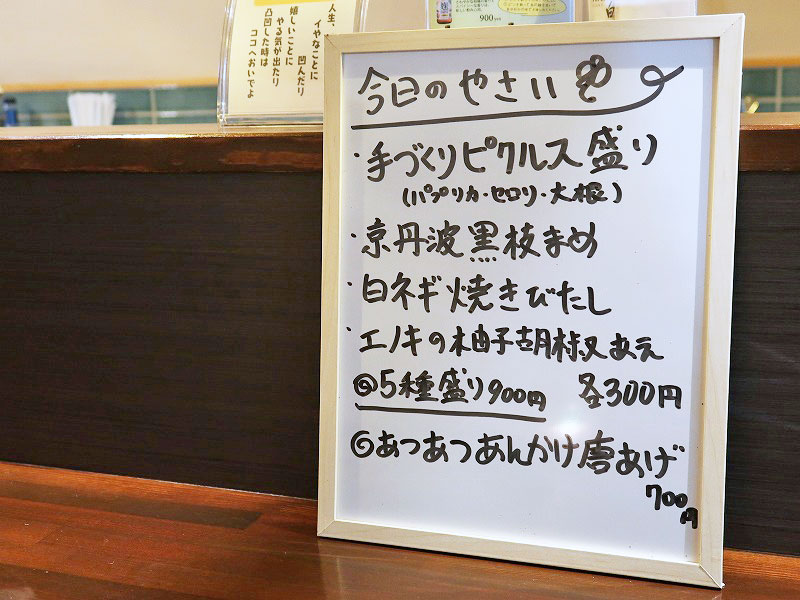 人生、
イヤなことに
凹んだり
嬉しいことに
やる気が出たり
凸凹した時は
ココへおいでよ
900yen
今日のやさい
・手づくりピクルス盛り
(パプリカ・セロリ・大根)
・京丹波黒枝まめ
・白ネギ焼きびたし
・エノキの柚子胡椒あえ
◎5種盛り900円 各300円
◎あつあつあんかけ唐あげ
700円